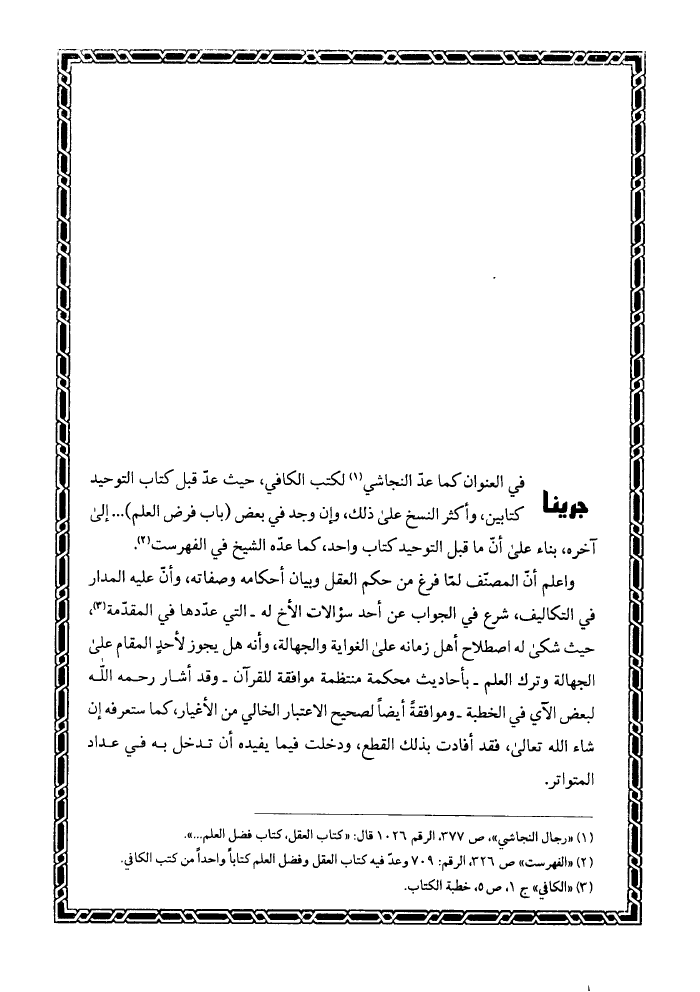 جرينا في العنوان كما عدّ النجاشي(١) لكتب الكافي، حيث عدّ قبل كتاب التوحيد
كتابين، وأكثر النسخ علىٰ ذلك، وإن وجد في بعض (باب فرض العلم)... إلىٰ
آخره، بناء علىٰ أنّ ما قبل التوحيد كتاب واحد، كما عدّه الشيخ في الفهرست(٢).
واعلم أنّ المصنّف لمّا فرغ من حكم العقل وبيان أحكامه وصفاته، وأنّ عليه المدار
في التكاليف، شرع في الجواب عن أحد سؤالات الأخ له ـ التي عدّدها في المقدّمة(٣)،
حيث شكىٰ له اصطلاح أهل زمانه علىٰ الغواية والجهالة، وأنه هل يجوز لأحدٍ المقام علىٰ
الجهالة وترك العلم ـ بأحاديث محكمة منتظمة موافقة للقرآن ـ وقد أشار رحمه اللّٰه
لبعض الآي في الخطبة ـ وموافقةً أيضاً لصحيح الاعتبار الخالي من الأغيار، كما ستعرفه إن
شاء الله تعالىٰ، فقد أفادت بذلك القطع، ودخلت فيما يفيده أن تدخل به في عداد
المتواتر.
(١) «رجال النجاشي»، ص ٣٧٧، الرقم ١٠٢٦ قال: «كتاب العقل، كتاب فضل العلم...».
(٢) «الفهرست» ص ٣٢٦، الرقم: ٧٠٩ وعدّ فيه كتاب العقل وفضل العلم كتاباً واحداً من كتب الكافي.
(٣) «الكافي» ج ١، ص ٥، خطبة الكتاب.